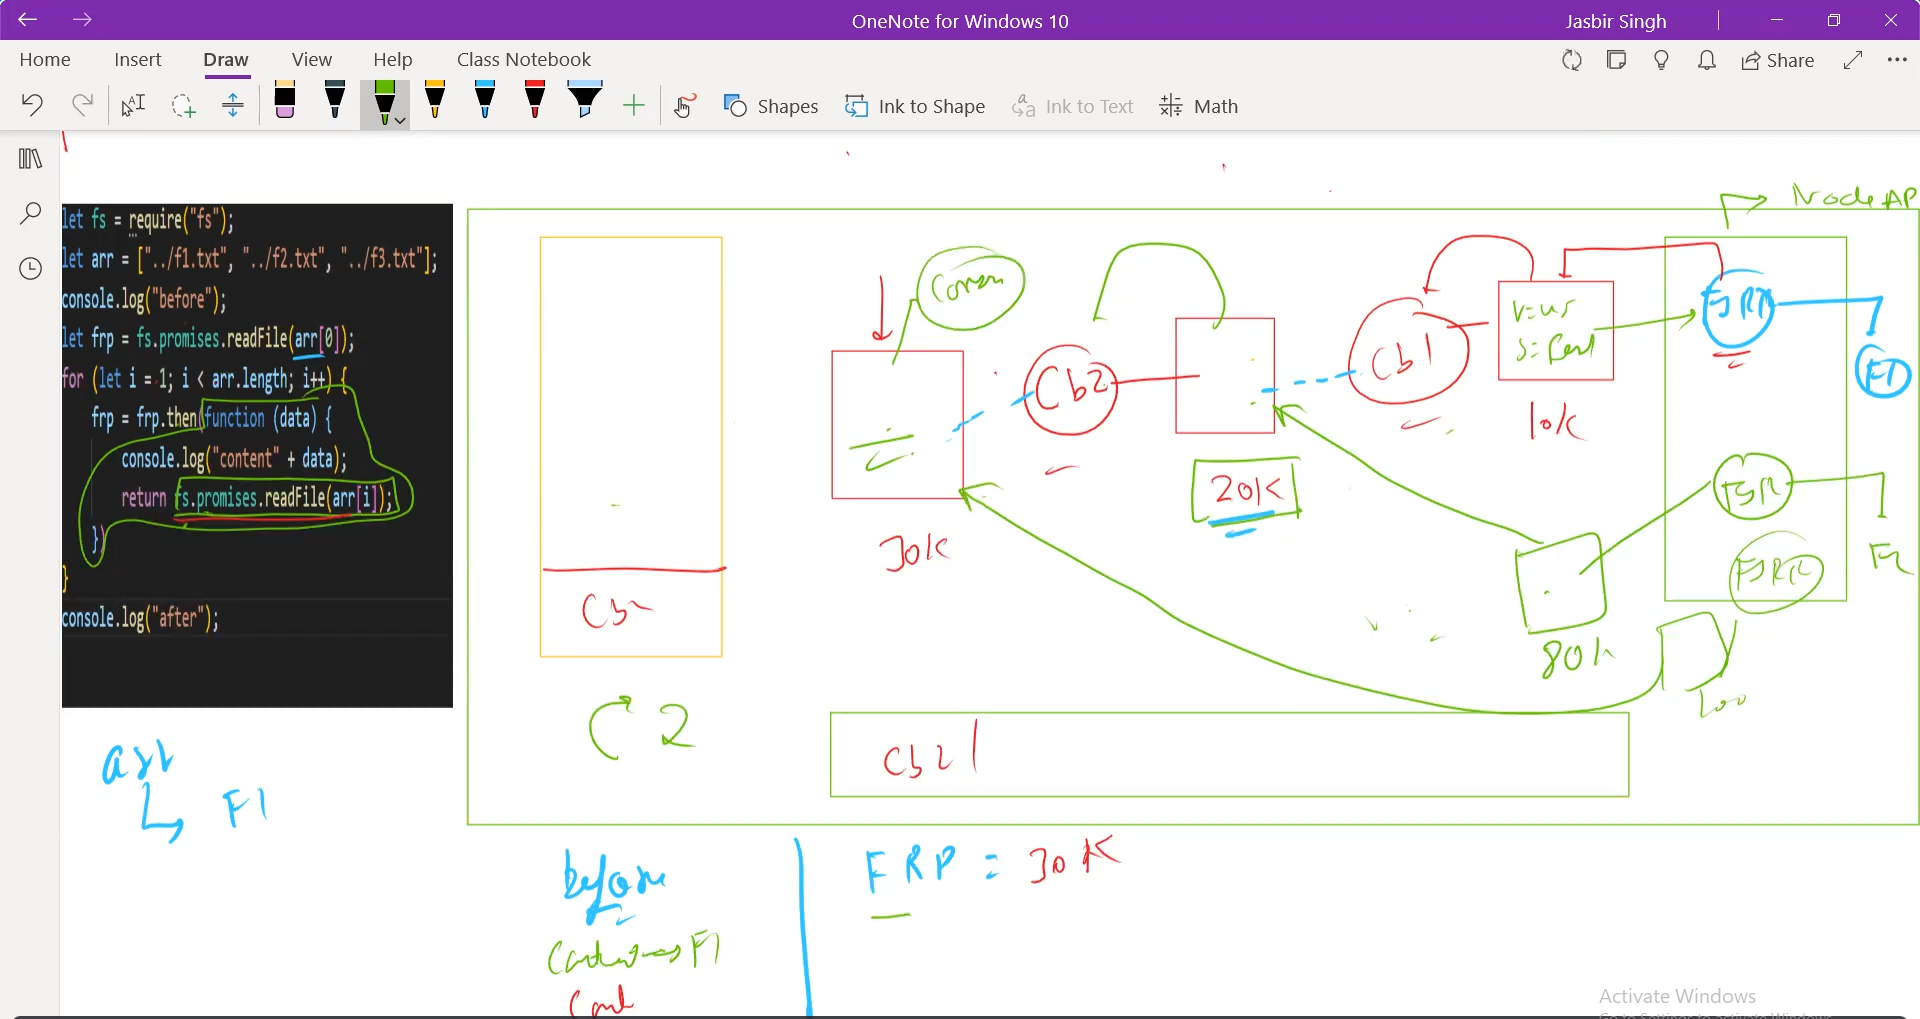 OneNote for Windows 10
Jasbir Singh
Home Insert Draw View Help Class Notebook
Share
Shapes Ink to Shape Ink to Text Math
let fs = require("fs");
let arr = ["../f1.txt", "../f2.txt", "../f3.txt"];
console.log("before");
let frp = fs.promises.readFile(arr[0]);
for (let i = 1; i < arr.length; i++) {
frp = frp.then(function (data) {
console.log("content" + data);
return fs.promises.readFile(arr[i]);
})
}
console.log("after");
Node AP
Cb2
Cb1
10K
20K
30K
F1
80K
Cb2
2
Cb2
arr
F1
before
F1
FRP = 30K
Activate Windows